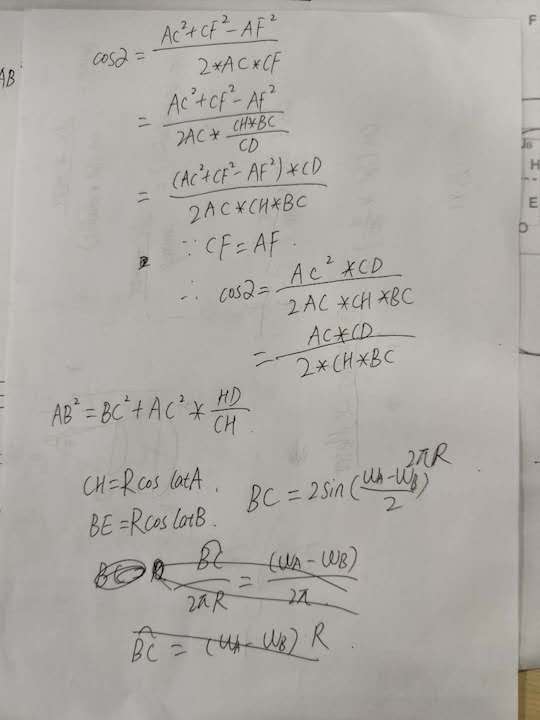 cos2 = \frac{AC²+CF²-AF²}{2*AC*CF}
= \frac{AC²+CF²-AF²}{2AC*\frac{CH*BC}{CD}}
= \frac{(AC²+CF²-AF²)*CD}{2AC*CH*BC}
∵ CF=AF.
∴ cos2= \frac{AC²*CD}{2AC*CH*BC}
= \frac{AC*CD}{2*CH*BC}
AB²=BC²+AC²*\frac{HD}{CH}
CH=Rcos latA.
BE=Rcos latB.
BC=2sin(\frac{ωA-ωB}{2}) 2πR
\frac{BC}{2πR} = \frac{(ωA-ωB)}{2π}
BC = (ωA-ωB) R
AB
F
H
E